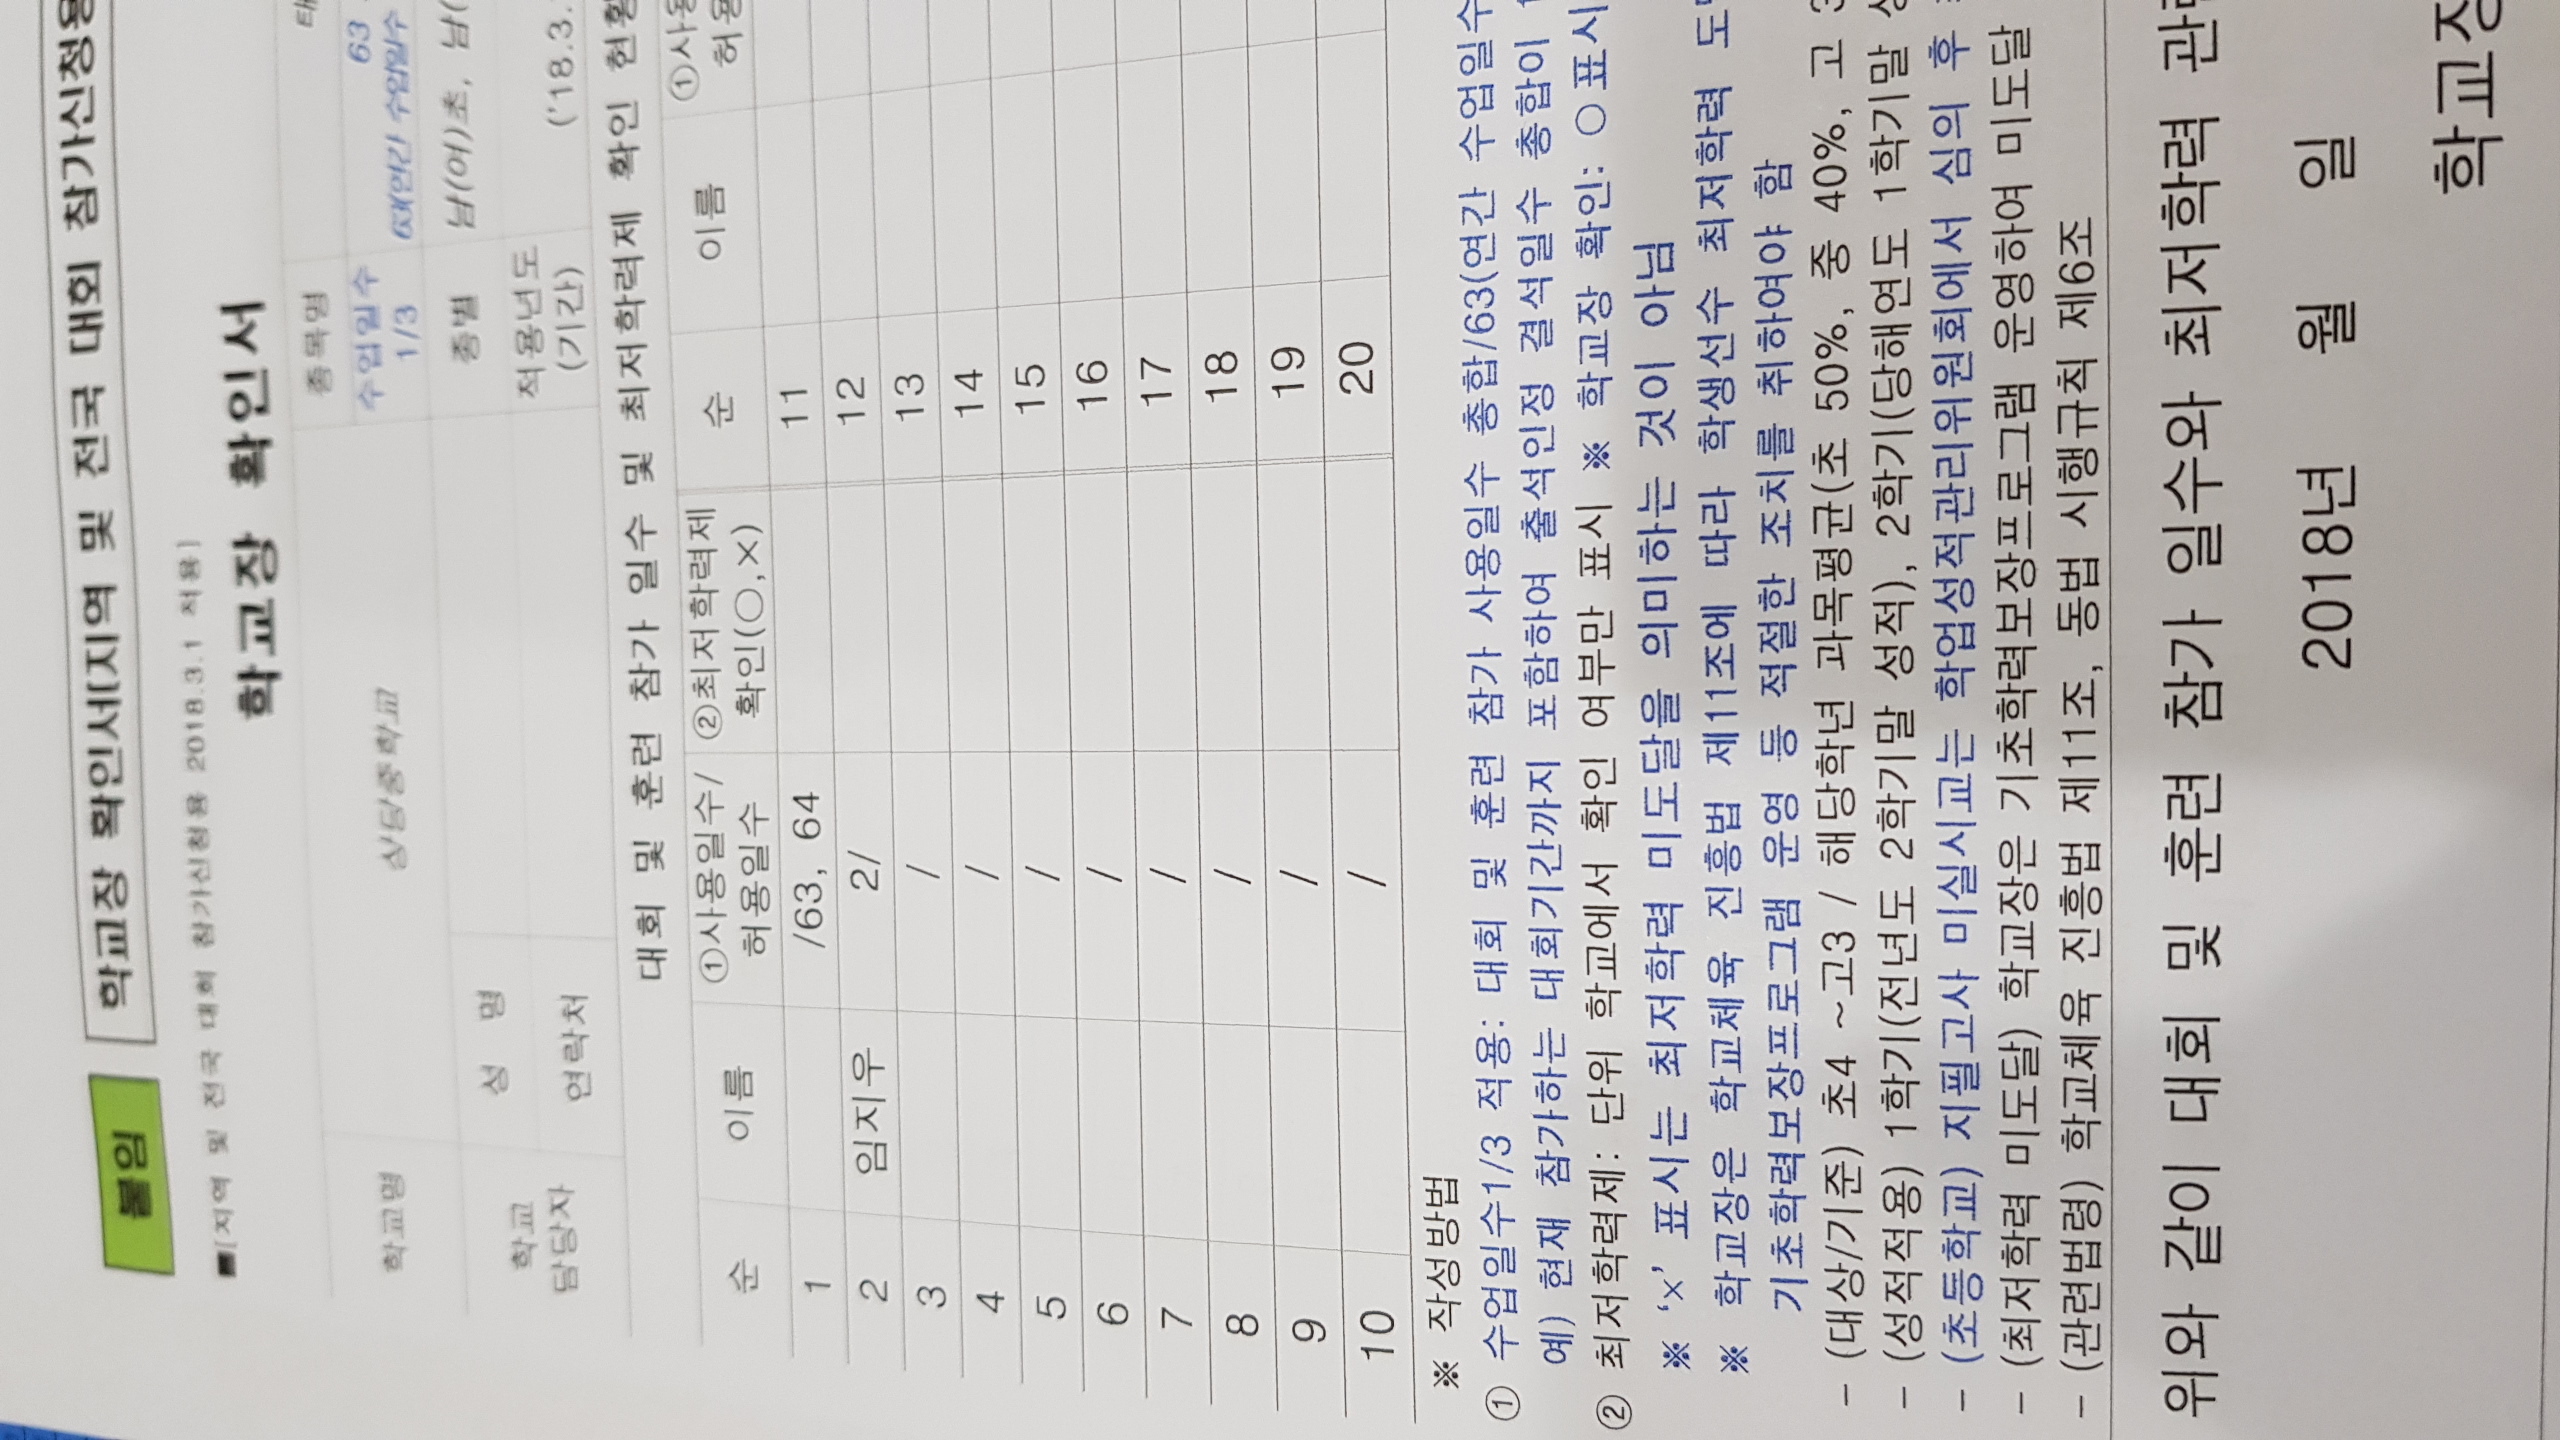 붙임
학교장 확인서(지역 및 전국 대회 참가신청용
■[지역 및 전국 대회 참가신청용 2018.3.1 적용]
학교장 확인서
학교명 상당중학교 종목명 태
수업일수 1/3 63
연간 수업일수
학교 담당자 성 명 종별 남(여)초, 남(
연락처 적용년도 (기간) ('18.3.
대회 및 훈련 참가 일수 및 최저학력제 확인 현황
순 이름 ①사용일수/ 허용일수 ②최저학력제 확인(○,×) 순 이름 ①사용 허용
1 /63, 64 11
2 임지우 2/ 12
3 / 13
4 / 14
5 / 15
6 / 16
7 / 17
8 / 18
9 / 19
10 / 20
※ 작성방법
① 수업일수1/3 적용: 대회 및 훈련 참가 사용일수 총합/63(연간 수업일수
예) 현재 참가하는 대회기간까지 포함하여 출석인정 결석일수 총합이 1
② 최저학력제: 단위 학교에서 확인 여부만 표시 ※ 학교장 확인: ○ 표시
※ ‘×’ 표시는 최저학력 미도달을 의미하는 것이 아님
※ 학교장은 학교체육 진흥법 제11조에 따라 학생선수 최저학력 도
기초학력보장프로그램 운영 등 적절한 조치를 취하여야 함
- (대상/기준) 초4 ~고3 / 해당학년 과목평균(초 50%, 중 40%, 고 3
- (성적적용) 1학기(전년도 2학기말 성적), 2학기(당해연도 1학기말 성
- (초등학교) 지필고사 미실시교는 학업성적관리위원회에서 심의 후
- (최저학력 미도달) 학교장은 기초학력보장프로그램 운영하여 미도달
- (관련법령) 학교체육 진흥법 제11조, 동법 시행규칙 제6조
위와 같이 대회 및 훈련 참가 일수와 최저학력 관련
2018년 월 일
학교장